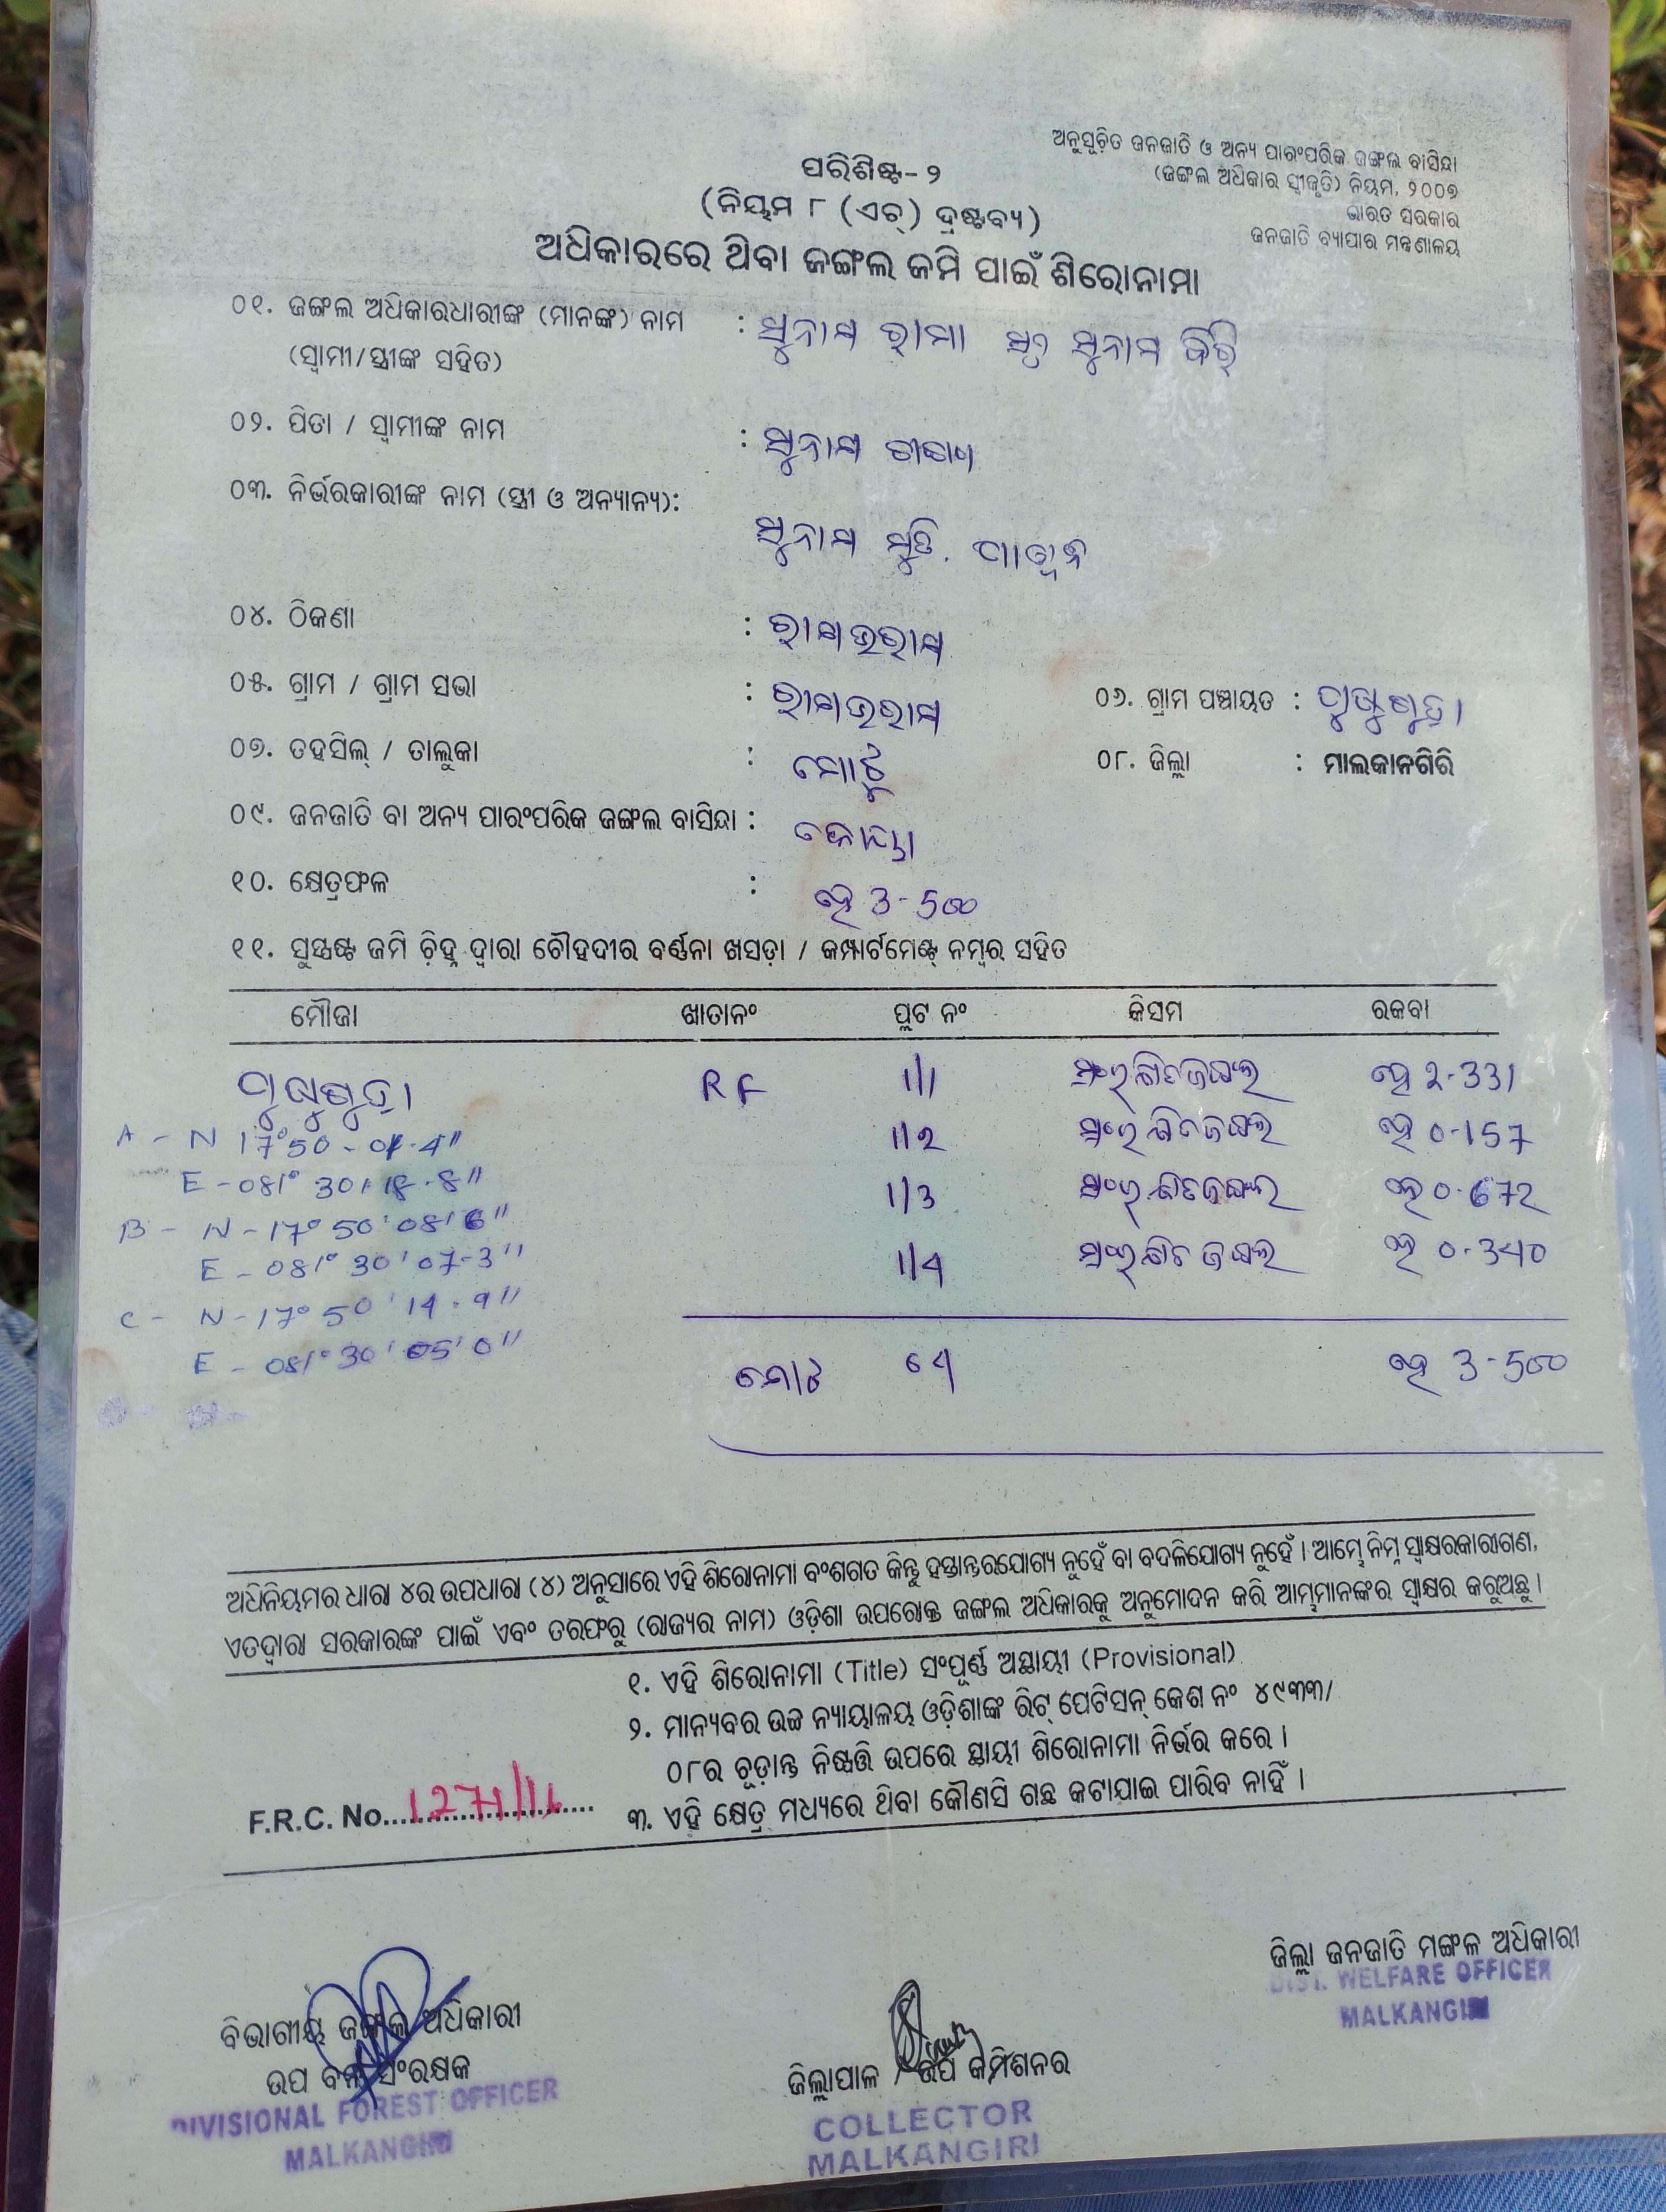 ଅନୁସୂଚିତ ଜନଜାତି ଓ ଅନ୍ୟ ପାରଂପରିକ ଜଙ୍ଗଲ ବାସିନ୍ଦା
(ଜଙ୍ଗଲ ଅଧିକାର ସ୍ୱୀକୃତି) ନିୟମ, ୨୦୦୭
ଭାରତ ସରକାର
ଜନଜାତି ବ୍ୟାପାର ମନ୍ତ୍ରଣାଳୟ
ପରିଶିଷ୍ଟ-୨
(ନିୟମ ୮ (ଏଚ୍) ଦ୍ରଷ୍ଟବ୍ୟ)
ଅଧିକାରରେ ଥିବା ଜଙ୍ଗଲ ଜମି ପାଇଁ ଶିରୋନାମା
୦୧. ଜଙ୍ଗଲ ଅଧିକାରଧାରୀଙ୍କ (ମାନଙ୍କ) ନାମ :
(ସ୍ୱାମୀ/ସ୍ତ୍ରୀଙ୍କ ସହିତ)
୦୨. ପିତା / ସ୍ୱାମୀଙ୍କ ନାମ :
୦୩. ନିର୍ଭରକାରୀଙ୍କ ନାମ (ସ୍ତ୍ରୀ ଓ ଅନ୍ୟାନ୍ୟ):
୦୪. ଠିକଣା :
୦୫. ଗ୍ରାମ / ଗ୍ରାମ ସଭା :
୦୬. ଗ୍ରାମ ପଞ୍ଚାୟତ :
୦୭. ତହସିଲ୍ / ତାଲୁକା : ମୋଟୁ
୦୮. ଜିଲ୍ଲା : ମାଲକାନଗିରି
୦୯. ଜନଜାତି ବା ଅନ୍ୟ ପାରଂପରିକ ଜଙ୍ଗଲ ବାସିନ୍ଦା : କୋୟା
୧୦. କ୍ଷେତ୍ରଫଳ : ହେ 3-500
୧୧. ସୁସ୍ପଷ୍ଟ ଜମି ଚିହ୍ନ ଦ୍ୱାରା ଚୌହଦୀର ବର୍ଣ୍ଣନା ଖସଡ଼ା / କମ୍ପାର୍ଟମେଣ୍ଟ୍ ନମ୍ବର ସହିତ
ମୌଜା ଖାତାନଂ ପ୍ଲଟ ନଂ କିସମ ରକବା
RF 1/1 ସଂରକ୍ଷିତ ଜଙ୍ଗଲ ହେ 2-331
1/2 ସଂରକ୍ଷିତ ଜଙ୍ଗଲ ହେ 0-157
1/3 ସଂରକ୍ଷିତ ଜଙ୍ଗଲ ହେ 0-672
1/4 ସଂରକ୍ଷିତ ଜଙ୍ଗଲ ହେ 0-340
A - N 17°50-04"
E - 081° 30' 18.8"
B - N - 17° 50' 08' 6"
E - 081° 30' 07-3"
C - N - 17° 50' 14.9"
E - 081° 30' 05' 0"
ମୋଟ ହେ 3-500
ଅଧିନିୟମର ଧାରା ୪ର ଉପଧାରା (୪) ଅନୁସାରେ ଏହି ଶିରୋନାମା ବଂଶଗତ କିନ୍ତୁ ହସ୍ତାନ୍ତରଯୋଗ୍ୟ ନୁହେଁ ବା ବଦଳିଯୋଗ୍ୟ ନୁହେଁ । ଆମ୍ଭେ ନିମ୍ନ ସ୍ୱାକ୍ଷରକାରୀଗଣ,
ଏତଦ୍ୱାରା ସରକାରଙ୍କ ପାଇଁ ଏବଂ ତରଫରୁ (ରାଜ୍ୟର ନାମ) ଓଡ଼ିଶା ଉପରୋକ୍ତ ଜଙ୍ଗଲ ଅଧିକାରକୁ ଅନୁମୋଦନ କରି ଆମ୍ଭମାନଙ୍କର ସ୍ୱାକ୍ଷର କରୁଅଛୁ ।
୧. ଏହି ଶିରୋନାମା (Title) ସଂପୂର୍ଣ୍ଣ ଅସ୍ଥାୟୀ (Provisional)
୨. ମାନ୍ୟବର ଉଚ୍ଚ ନ୍ୟାୟାଳୟ ଓଡ଼ିଶାଙ୍କ ରିଟ୍ ପେଟିସନ୍ କେଶ ନଂ ୪୯୩୩/
୦୮ର ଚୂଡ଼ାନ୍ତ ନିଷ୍ପତ୍ତି ଉପରେ ସ୍ଥାୟୀ ଶିରୋନାମା ନିର୍ଭର କରେ ।
୩. ଏହି କ୍ଷେତ୍ର ମଧ୍ୟରେ ଥିବା କୌଣସି ଗଛ କଟାଯାଇ ପାରିବ ନାହିଁ ।
F.R.C. No. 1271/11
ଜିଲ୍ଲା ଜନଜାତି ମଙ୍ଗଳ ଅଧିକାରୀ
DIST. WELFARE OFFICER
MALKANGIRI
ବିଭାଗୀୟ ଜଙ୍ଗଲ ଅଧିକାରୀ
ଉପ ବନ ସଂରକ୍ଷକ
DIVISIONAL FOREST OFFICER
MALKANGIRI
ଜିଲ୍ଲାପାଳ / ଉପ କମିଶନର
COLLECTOR
MALKANGIRI